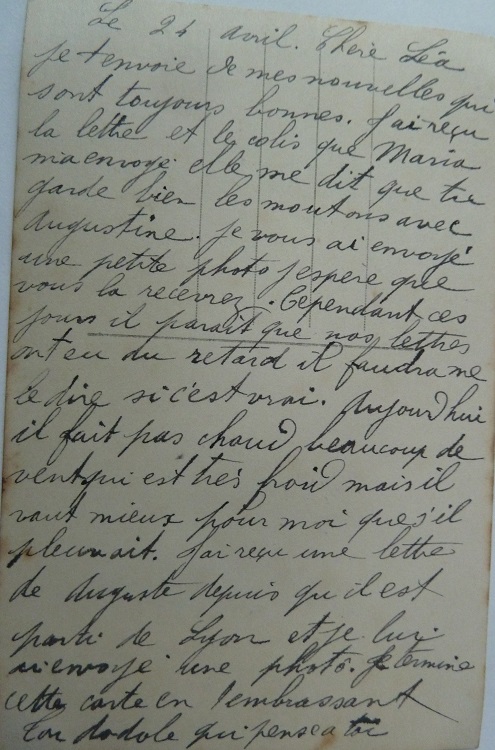 Le 24 avril. Chère Léa
je t'envoie de mes nouvelles qui
sont toujours bonnes. J'ai reçu
la lettre et le colis que Maria
m'a envoyé. elle me dit que tu
garde bien les moutons avec
augustine. je vous ai envoyé
une petite photo j'espere que
vous la recevrez. Cependant, ces
jours il parait que nos lettres
ont eu du retard il faudra me
le dire si c'est vrai. Aujourd'hui
il fait pas chaud beaucoup de
vent qui est très froid mais il
vaut mieux pour moi que s'il
pleuvait. J'ai reçu une lettre
de Auguste depuis qu'il est
parti de Lyon et je lui
ai envoyé une photo. Je termine
cette carte en t'embrassant
Ton qui pense a toi